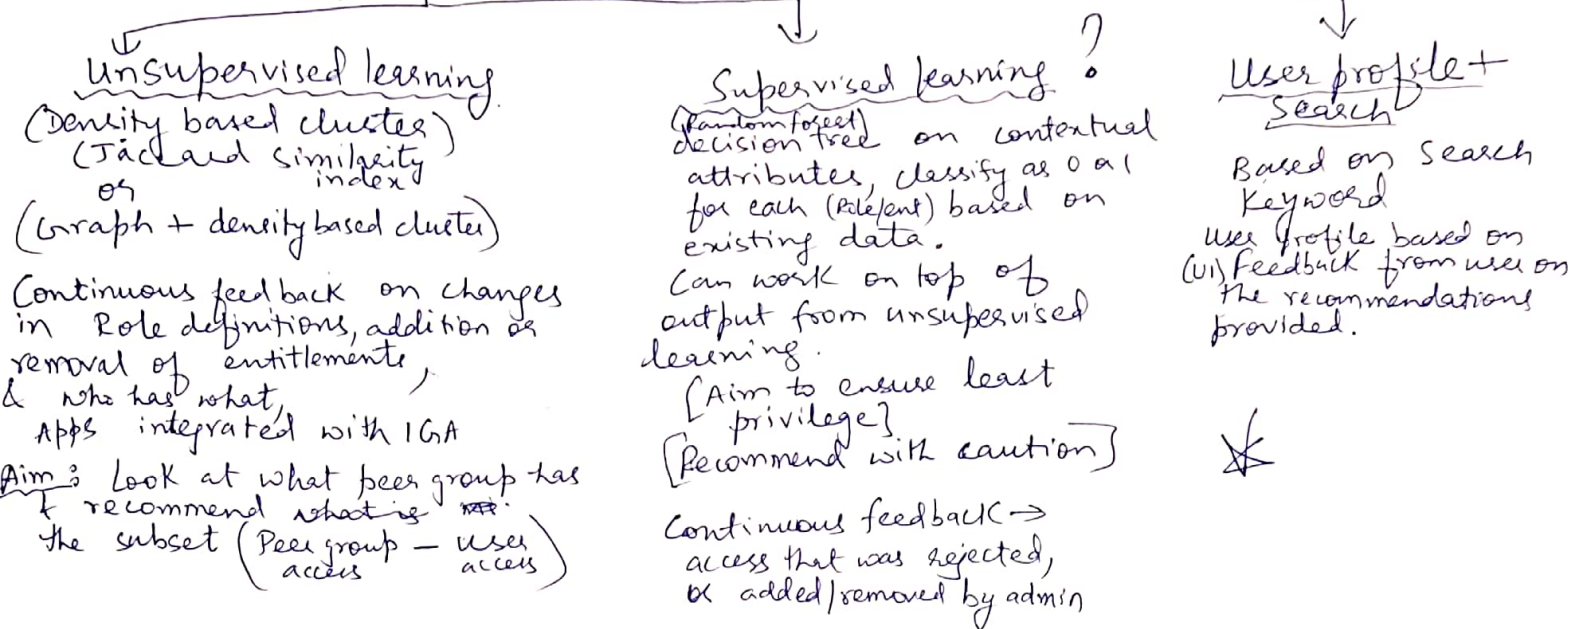 Unsupervised learning
(Density based cluster)
(Jaccard similarity
index)
or
(Graph + density based cluster)
Continuous feedback on changes
in Role definitions, addition or
removal of entitlements,
& who has what,
Apps integrated with IGA
Aim: Look at what peer group has
& recommend what is
the subset (Peer group access - user access)
Supervised learning ?
(Random forest)
decision tree on contextual
attributes, classify as 0 or 1
for each (Role/ent) based on
existing data.
Can work on top of
output from unsupervised
learning.
[Aim to ensure least
privilege]
[Recommend with caution]
Continuous feedback →
access that was rejected,
or added/removed by admin
User profile +
Search
Based on Search
Keyword
User profile based on
(UI) Feedback from user on
the recommendations
provided.